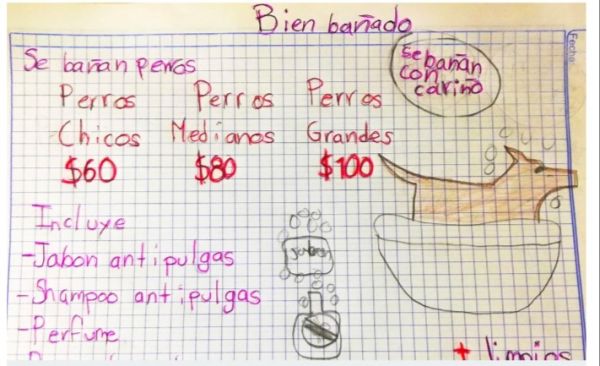 Bien bañado
Se bañan perros
Se bañan
con
cariño
Perros Perros Perros
Chicos Medianos Grandes
$60 $80 $100
Incluye
-Jabon antipulgas
-Shampoo antipulgas
-Perfume
Jabon
+ limpios
Fecha: